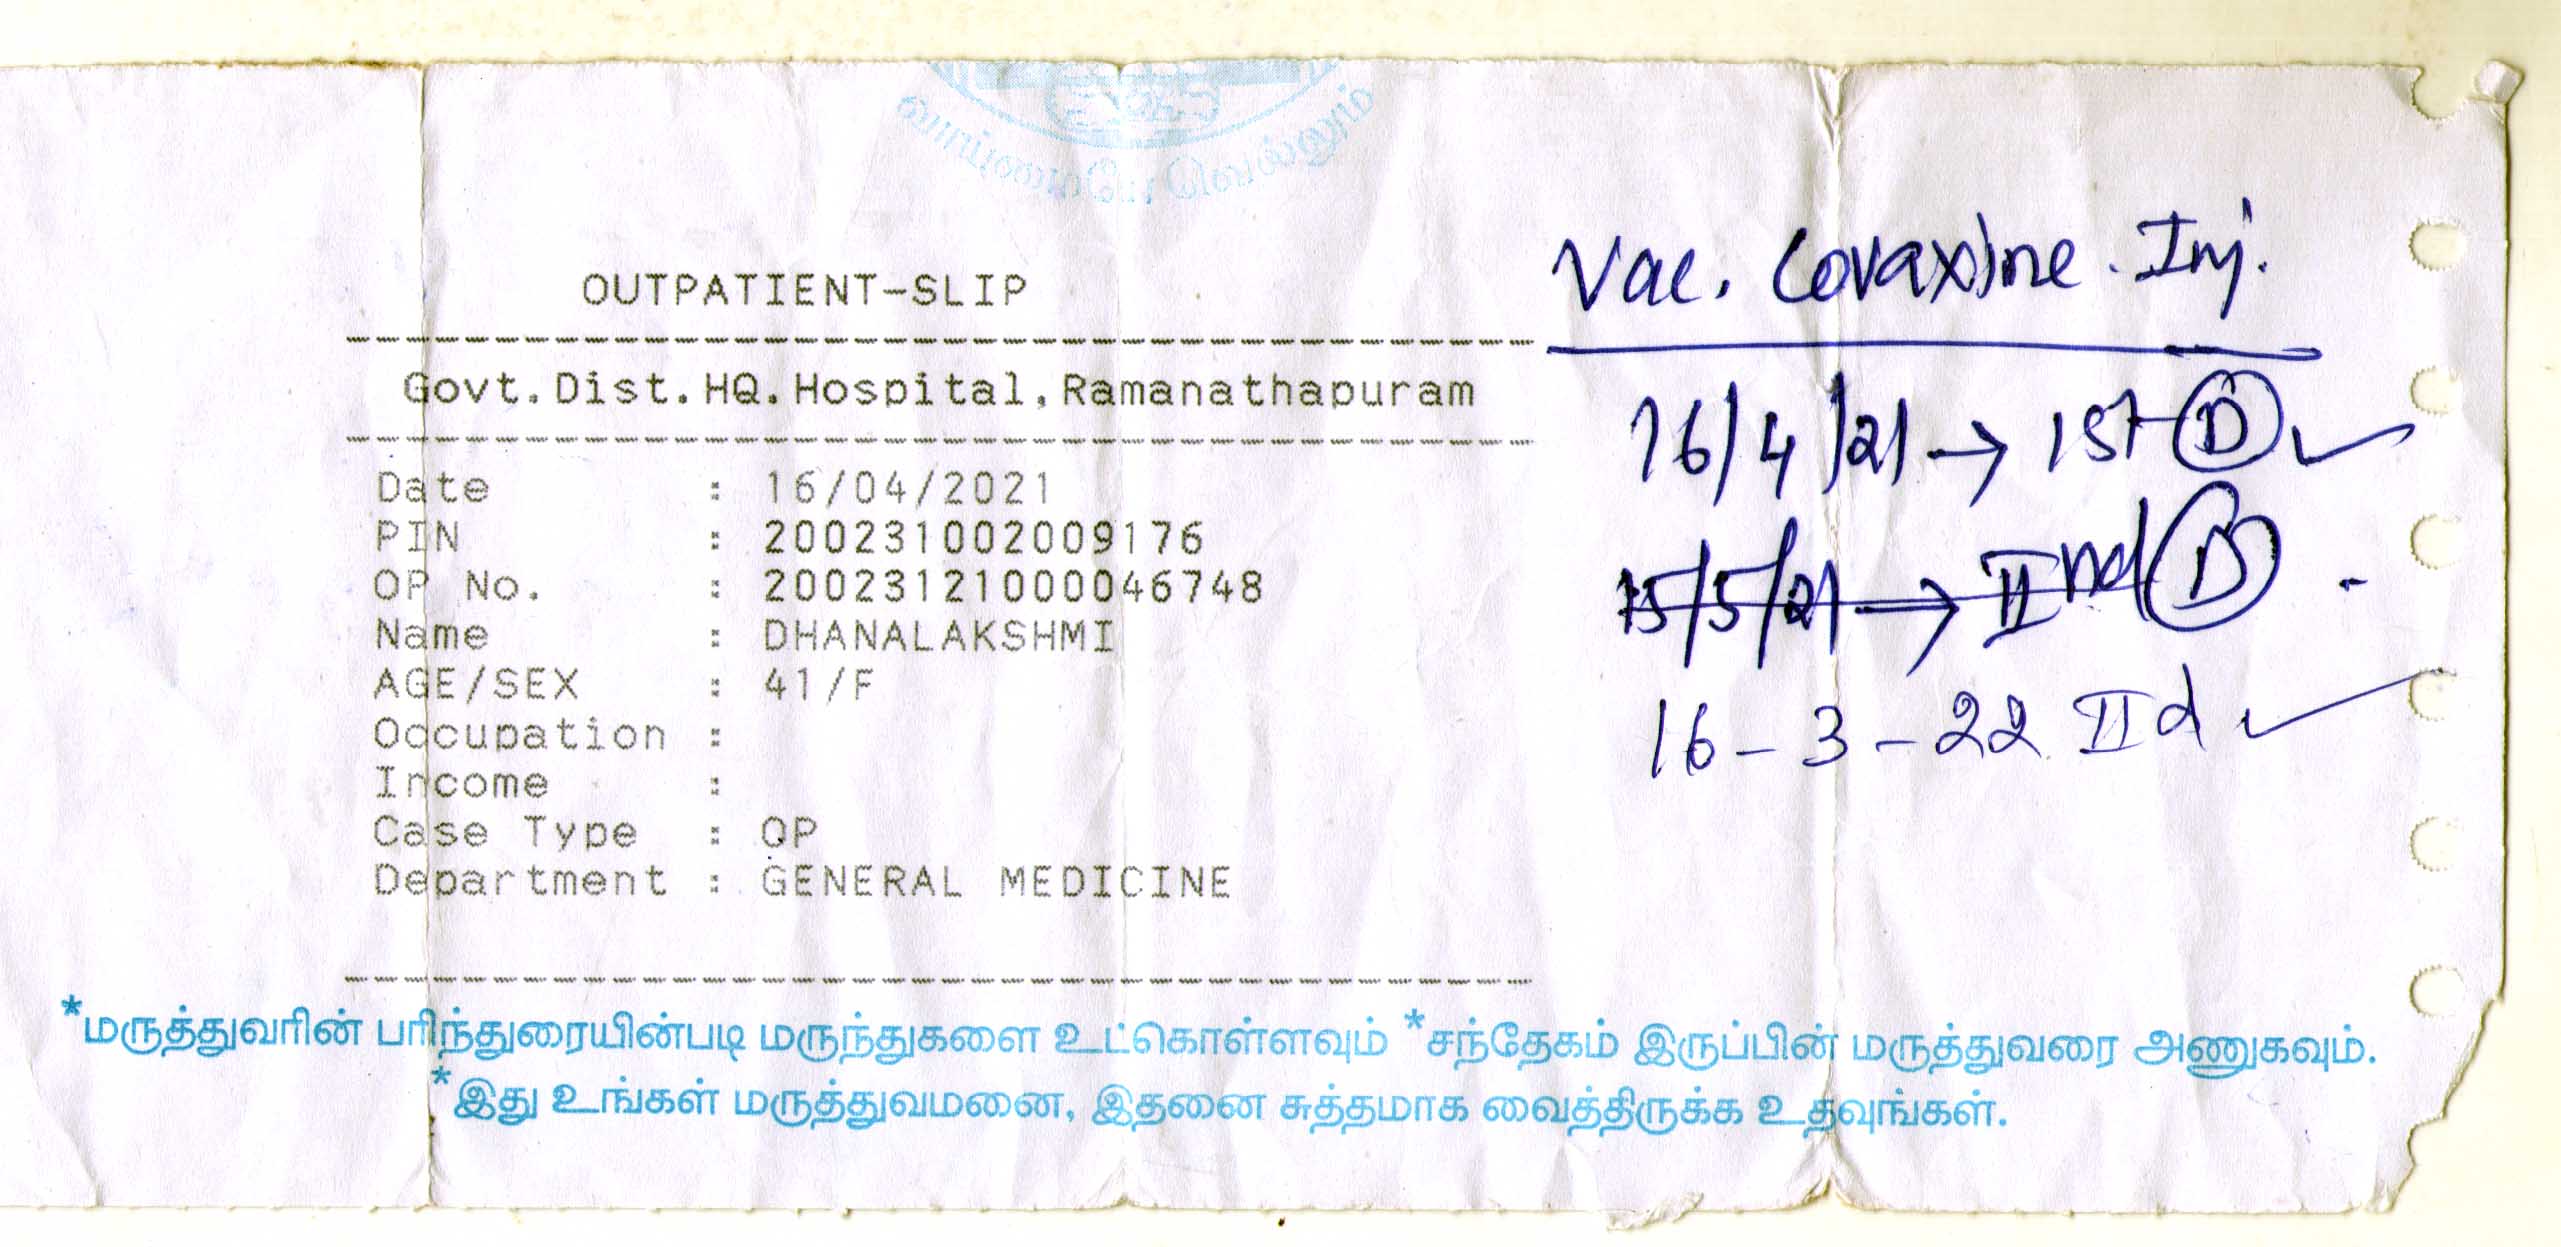 வாய்மையே வெல்லும்
OUTPATIENT-SLIP
Govt.Dist.HQ.Hospital,Ramanathapuram
Date : 16/04/2021
PIN : 200231002009176
OP No. : 20023121000046748
Name : DHANALAKSHMI
AGE/SEX : 41/F
Occupation :
Income :
Case Type : OP
Department : GENERAL MEDICINE
Vac. Covaxine. Inj.
16/4/21 → 1st D ✓
15/5/21 → IInd D
16-3-22 II d ✓
*மருத்துவரின் பரிந்துரையின்படி மருந்துகளை உட்கொள்ளவும் *சந்தேகம் இருப்பின் மருத்துவரை அணுகவும்.
*இது உங்கள் மருத்துவமனை, இதனை சுத்தமாக வைத்திருக்க உதவுங்கள்.